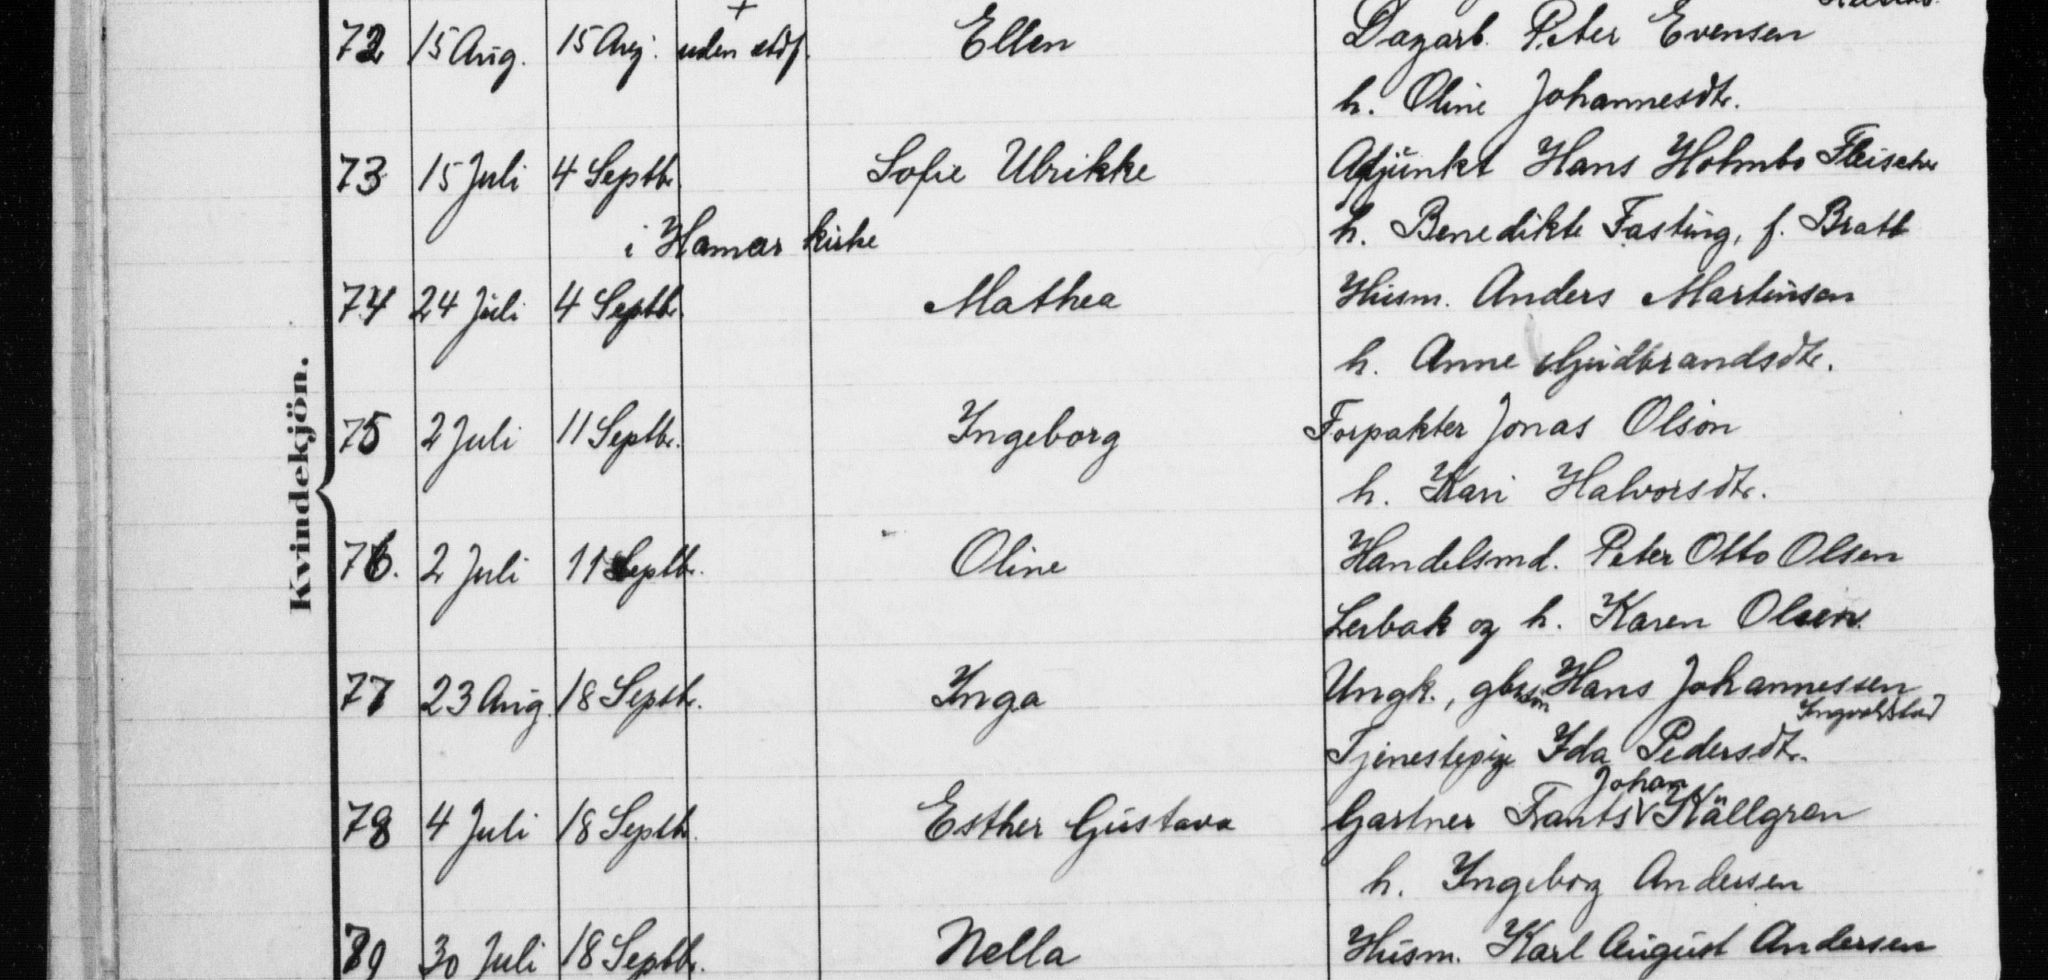 Kvindekjön.
72 15 Aug. 15 Aug. uden stdf. Ellen Dagarb. Peter Evensen
h. Oline Johannesdtr.
73 15 Juli 4 Septbr. Sofie Ulrikke Adjunkt Hans Holmbo Fleischer
i Hamar kirke h. Benedikte Fasting, f. Bratt
74 24 Juli 4 Septbr. Mathea Husm. Anders Martinsen
h. Anne Gudbrandsdtr.
75 2 Juli 11 Septbr. Ingeborg Forpakter Jonas Olson
h. Kari Halvorsdtr.
76. 2 Juli 11 Septbr. Oline Handelsmd. Peter Otto Olsen
Lerbak og h. Karen Olsen
77 23 Aug. 18 Septbr. Inga Ungk., gbrsøn Hans Johannessen
Ingvoldstad
Tjenestepige Ida Pedersdtr.
Johan
78 4 Juli 18 Septbr. Esther Gustava Gartner Frants Källgren
h. Ingeborg Andersen
79 30 Juli 18 Septbr. Nella Husm. Karl August Andersen